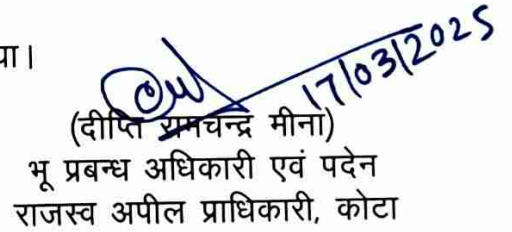 या।
17/03/2025
(दीप्ति रामचन्द्र मीना)
भू प्रबन्ध अधिकारी एवं पदेन
राजस्व अपील प्राधिकारी, कोटा